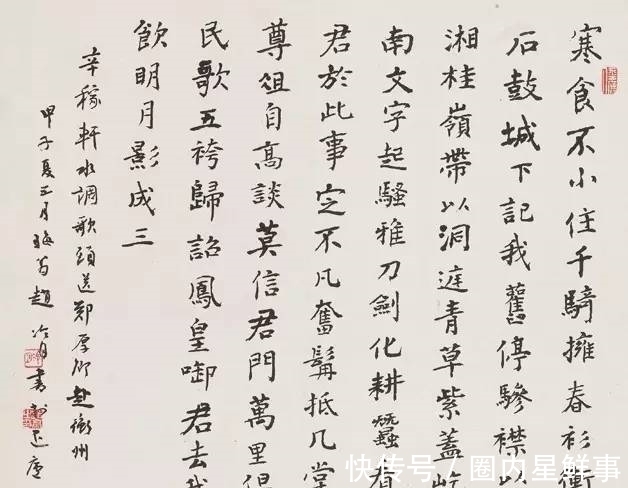 寒食不小住千騎擁春衫衡
石鼓城下記我舊停驂襟以
湘桂嶺帶以洞庭青草紫蓋屹
南文字起騷雅刀劍化耕蠶看
君於此事定不凡奮髯抵几堂
尊俎自高談莫信君門萬里
民歌五袴歸詔鳳皇啣君去我
飲明月影成三
辛稼軒水調歌頭送鄭厚卿赴衡州
甲子夏五月趙冷月書
快传号 / 圈内星鲜事